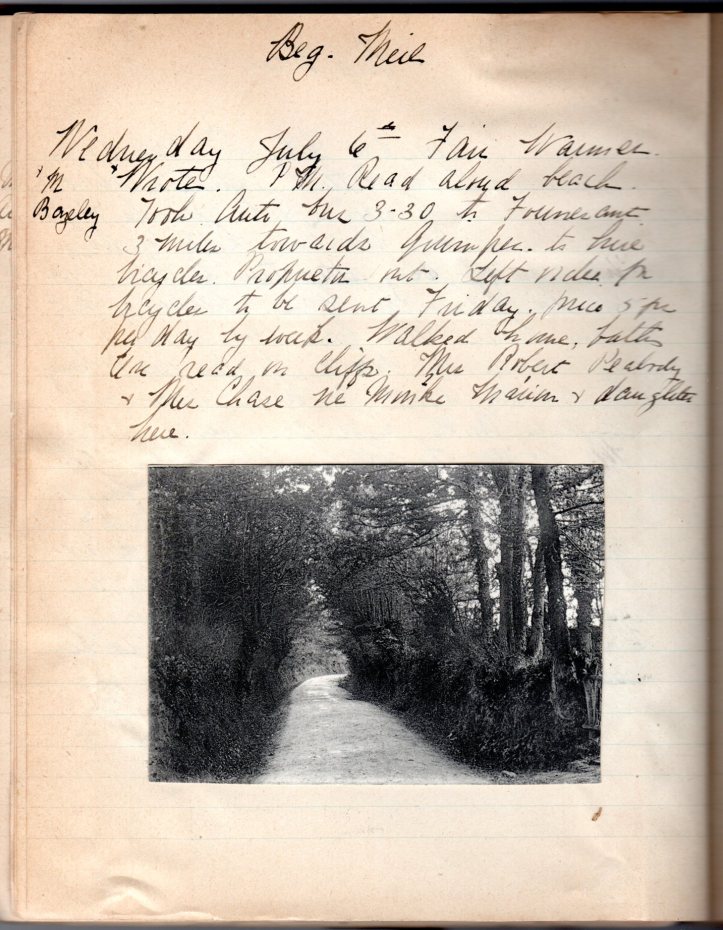 Beg. Meil
Wednesday July 6th Fair Warmer.
"M "Wrote. P.M. Read aloud beach.
Bazeley Took Auto bus 3-30 to Fouesnant
3 miles towards Quimper. to hire
bicycles. Proprietor out. Left order for
bicycles to be sent Friday. price 5 fr
per day by week. Walked home, bath
read on cliffs. Mrs Robert Peabody
& Mrs Chase née Marion & daughter
here.